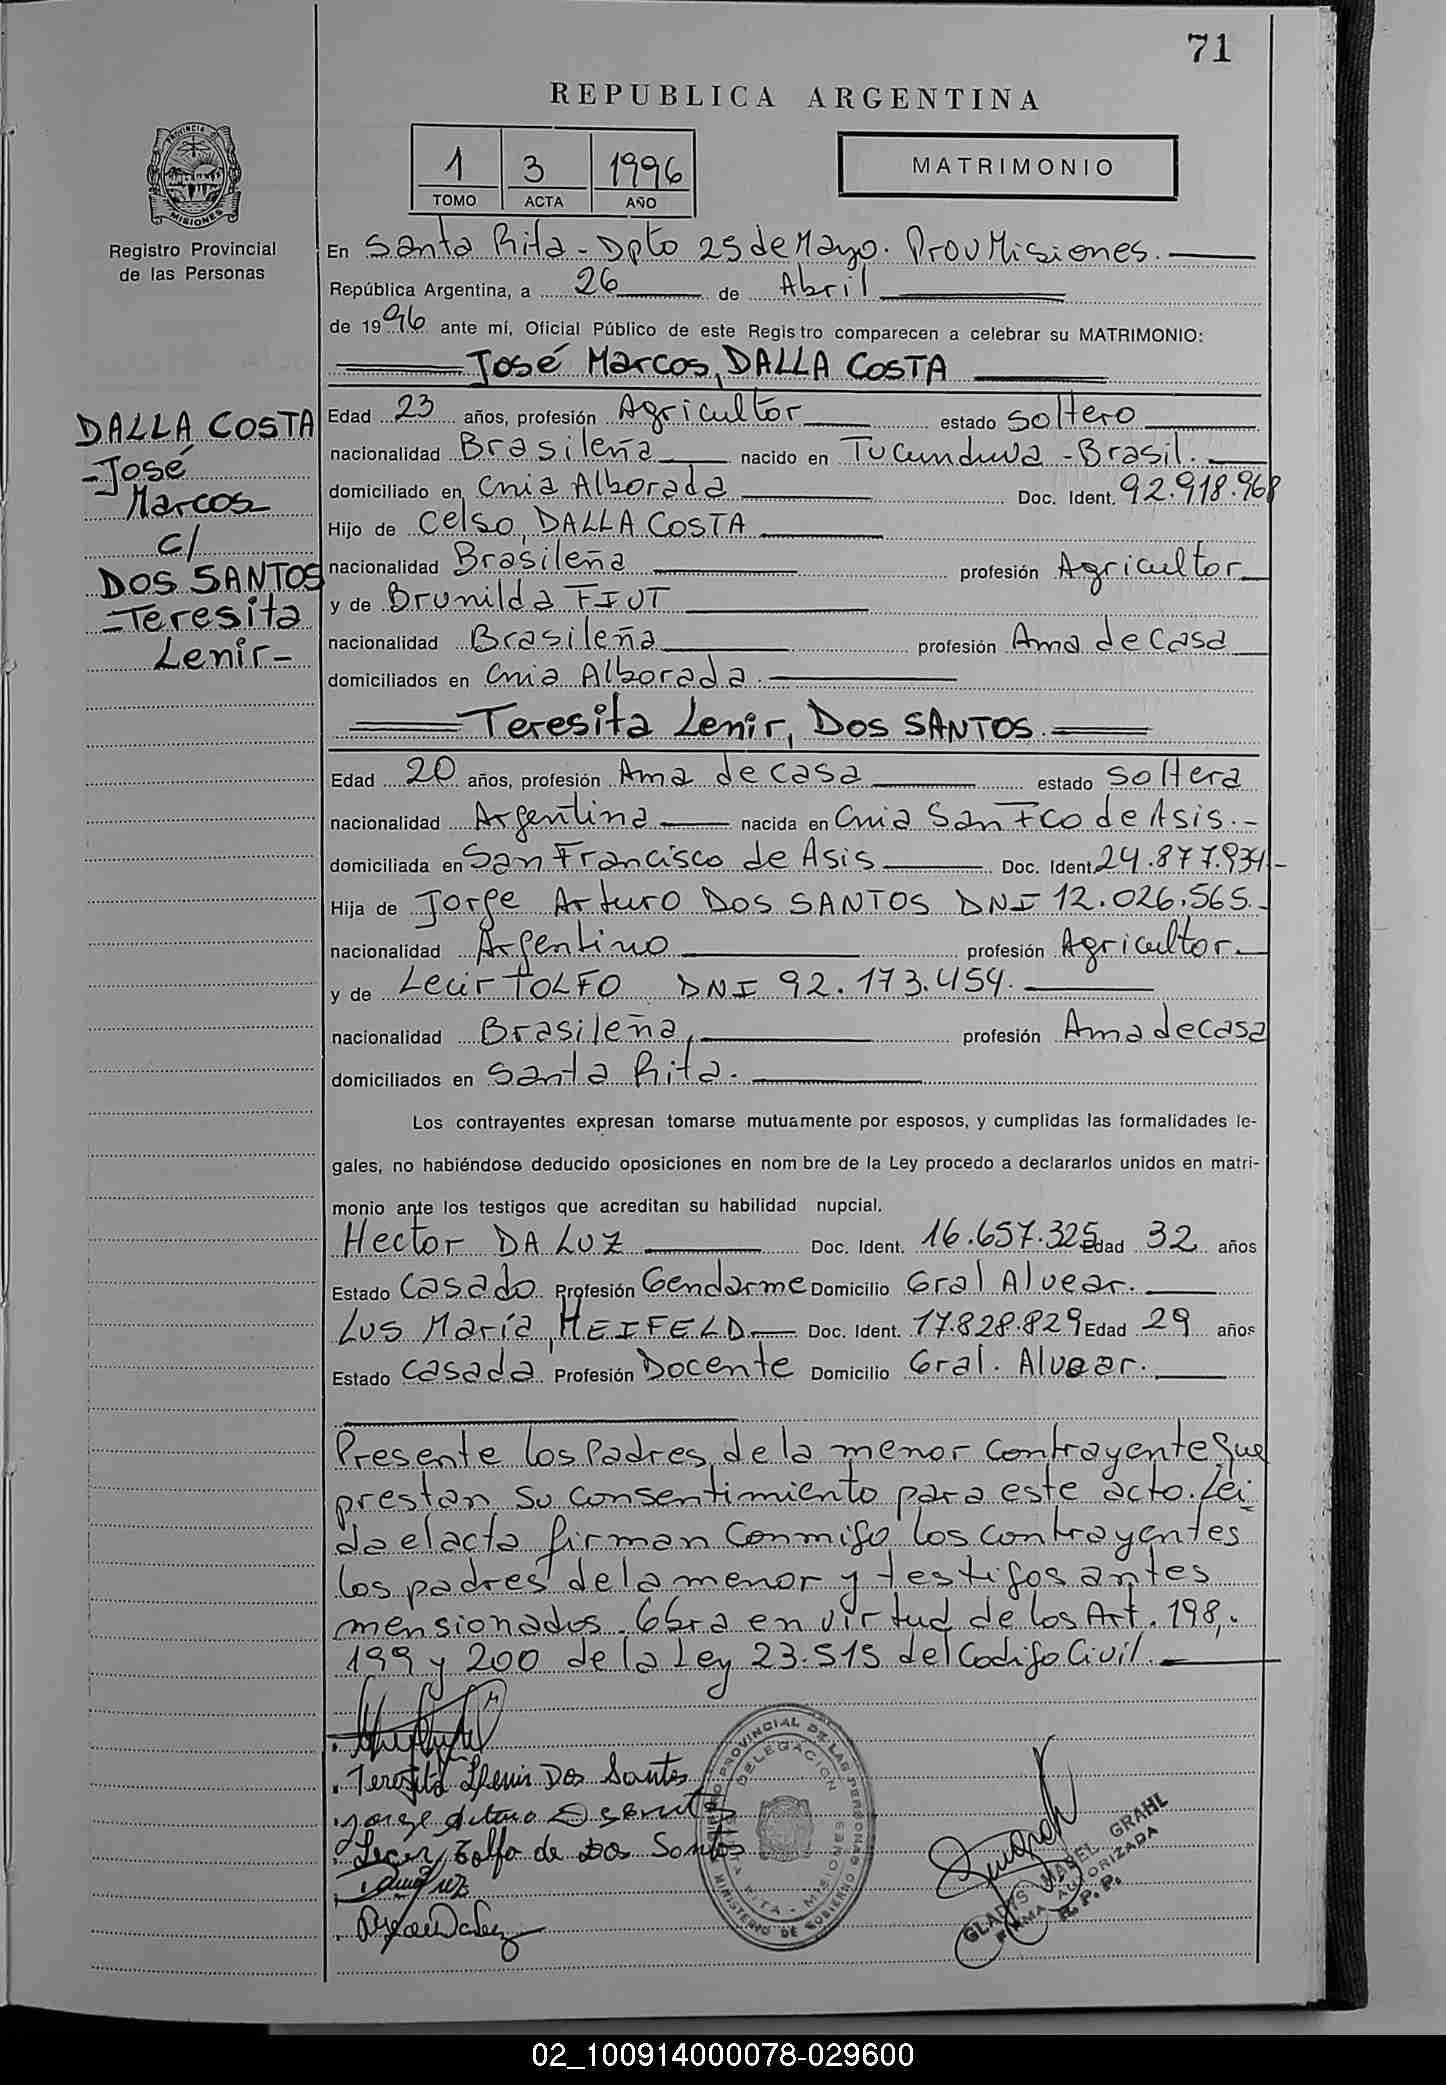 71
REPUBLICA ARGENTINA
PROVINCIA D
MISIONES
Registro Provincial
de las Personas
1 3 1996
TOMO ACTA AÑO
MATRIMONIO
En Santa Rita - Dpto 25 de Mayo. Prov Misiones.
República Argentina, a 26 de Abril
de 1996 ante mí, Oficial Público de este Registro comparecen a celebrar su MATRIMONIO:
José Marcos, DALLA COSTA
DALLA COSTA
- José
Marcos
c/
DOS SANTOS
- Teresita
Lenir -
Edad 23 años, profesión Agricultor estado soltero
nacionalidad Brasileña nacido en Tucunduva - Brasil.
domiciliado en Cnia Alborada Doc. Ident. 92.918.968
Hijo de Celso, DALLA COSTA
nacionalidad Brasileña profesión Agricultor
y de Brunilda FIUT
nacionalidad Brasileña profesión Ama de casa
domiciliados en Cnia Alborada.
Teresita Lenir, DOS SANTOS.
Edad 20 años, profesión Ama de casa estado soltera
nacionalidad Argentina nacida en Cnia San Fco de Asis. -
domiciliada en San Francisco de Asis Doc. Ident 24.877.934 -
Hija de Jorge Arturo DOS SANTOS DNI 12.026.565. -
nacionalidad Argentino profesión Agricultor
y de Lecir TOLFO DNI 92.173.454.
nacionalidad Brasileña, profesión Ama de casa
domiciliados en Santa Rita.
Los contrayentes expresan tomarse mutuamente por esposos, y cumplidas las formalidades le-
gales, no habiéndose deducido oposiciones en nom bre de la Ley procedo a declararlos unidos en matri-
monio ante los testigos que acreditan su habilidad nupcial.
Hector DA LUZ Doc. Ident. 16.657.325 Edad 32 años
Estado Casado Profesión Gendarme Domicilio Gral Alvear.
Lus María, HEIFELD Doc. Ident. 17.828.829 Edad 29 años
Estado Casada Profesión Docente Domicilio Gral. Alvear.
Presente los Padres de la menor contrayente que
prestan su consentimiento para este acto. Lei
da el acta firman conmigo los contrayentes
los padres de la menor y testigos antes
mensionados. Obra en virtud de los Art. 198,
199 y 200 de la Ley 23.515 del Codigo Civil.
Teresita Lenir Dos Santos
Jorge Arturo D santos
Lecir Tolfo de Dos Santos
REGISTRO PROVINCIAL DE LAS PERSONAS
DELEGACION
SANTA RITA - MISIONES
MINISTERIO DE GOBIERNO
GLADYS MABEL GRAHL
FIRMA AUTORIZADA
R.P.P.
02_100914000078-029600